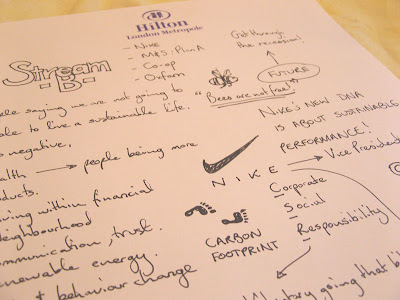 Hilton
London Metropole
- Nike
- M&S, Plan A
- Co-op
- Oxfam
Stream
-B-
Get through
the recession!
FUTURE
"Bees are not free"
people saying we are not going to
able to live a sustainable life.
negative,
health → people being more
products.
living within financial
neighbourhood
communication, trust.
renewable energy.
behaviour change
NIKE'S NEW DNA
IS ABOUT SUSTAINABLE
PERFORMANCE!
Vice President
NIKE
Corporate
Social
Responsibility
CARBON
FOOTPRINT
going that